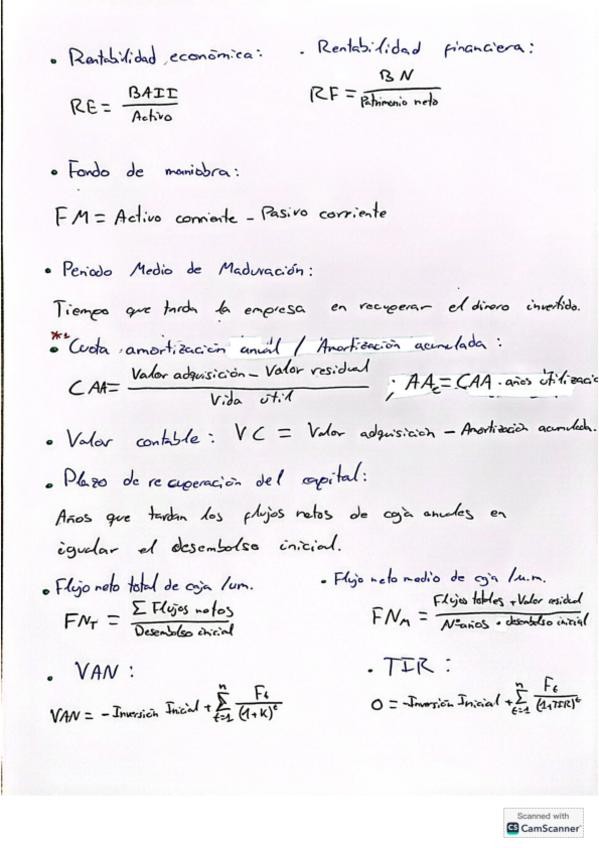 • Rentabilidad económica:
RE = BAII / Activo
• Rentabilidad financiera:
RF = BN / Patrimonio neto
• Fondo de maniobra:
FM = Activo corriente - Pasivo corriente
• Periodo Medio de Maduración:
Tiempo que tarda la empresa en recuperar el dinero invertido.
*
• Cuota amortización anual / Amortización acumulada:
CAA = Valor adquisición - Valor residual / Vida útil ; AAc = CAA · años utilizació
• Valor contable: VC = Valor adquisición - Amortización acumulada.
• Plazo de recuperación del capital:
Años que tardan los flujos netos de caja anuales en
igualar el desembolso inicial.
• Flujo neto total de caja /um.
FN_T = Σ Flujos netos / Desembolso inicial
• Flujo neto medio de caja /u.m.
FN_M = Flujos totales + Valor residual / Nº años · desembolso inicial
• VAN:
VAN = - Inversión Inicial + Σ_{t=1}^{n} F_t / (1+K)^t
• TIR:
0 = -Inversión Inicial + Σ_{t=1}^{n} F_t / (1+TIR)^t
Scanned with
CS CamScanner